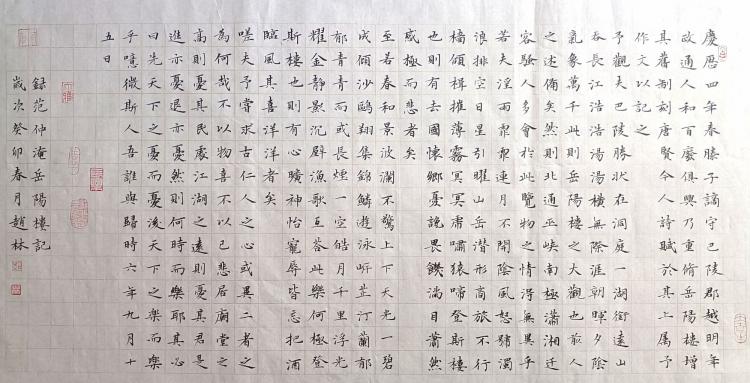 慶曆四年春滕子謫守巴陵郡越明年
政通人和百廢俱興乃重脩岳陽樓增
其舊制刻唐賢今人詩賦於其上属予
作文以記之
予觀夫巴陵勝狀在洞庭一湖銜遠山
吞長江浩浩湯湯橫無際涯朝暉夕陰
氣象萬千此則岳陽樓之大觀也前人
之述備矣然則北通巫峽南極瀟湘遷
客騷人多會於此覽物之情得無異乎
若夫淫雨霏霏連月不開陰風怒號濁
浪排空日星引曜山岳潛形商旅不行
檣傾楫摧薄霧冥冥嘯猿啼登斯樓
也則有去國懷鄉憂讒畏譏滿目蕭然
感極而悲者矣
至若春和景明波瀾不驚上下天光一碧
萬傾沙鷗翔集錦鱗遊泳岸芷汀蘭郁
郁青青而或長煙一空皓月千里浮光
耀金靜影沉璧漁歌互答此樂何極登
斯樓也則有心曠神怡寵辱皆忘把酒
臨風其喜洋洋者矣
嗟夫予嘗求古仁人之心或異二者之
為何哉不以物喜不以己悲居廟堂之
高則憂其民處江湖之遠則憂其君是
進亦憂退亦憂然則何時而樂耶其必
曰先天下之憂而憂後天下之樂而樂
乎噫微斯人吾誰與歸時六年九月十
五日
録范仲淹岳陽樓記
歲次癸卯春月趙林